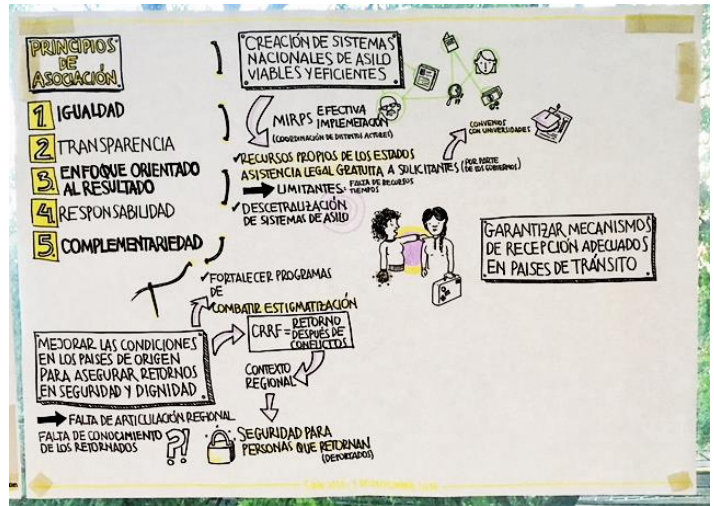 PRINCIPIOS
DE
ASOCIACIÓN
1. IGUALDAD
2 TRANSPARENCIA
3. ENFOQUE ORIENTADO
AL RESULTADO
4 RESPONSABILIDAD
5. COMPLEMENTARIEDAD
CREACIÓN DE SISTEMAS
NACIONALES DE ASILO
VIABLES Y EFICIENTES
MIRPS EFECTIVA
IMPLEMETACIÓN
(COORDINACIÓN DE DISTINTOS ACTORES)
CONVENIOS
CON UNIVERSIDADES
RECURSOS PROPIOS DE LOS ESTADOS
ASISTENCIA LEGAL GRATUITA A SOLICITANTES (POR PARTE
DE LOS GOBIERNOS)
LIMITANTES: FALTA DE RECURSOS
TIEMPOS
DESCETRALIZACIÓN
DE SISTEMAS DE ASILO
GARANTIZAR MECANISMOS
DE RECEPCIÓN ADECUADOS
EN PAISES DE TRÁNSITO
FORTALECER PROGRAMAS
DE
COMBATIR ESTIGMATIZACIÓN
MEJORAR LAS CONDICIONES
EN LOS PAISES DE ORIGEN
PARA ASEGURAR RETORNOS
EN SEGURIDAD Y DIGNIDAD
CRRF = RETORNO
DESPUÉS DE
CONFLICTOS
CONTEXTO
REGIONAL
FALTA DE ARTICULACIÓN REGIONAL
FALTA DE CONOCIMIENTO
DE LOS RETORNADOS ?!
SEGURIDAD PARA
PERSONAS QUE RETORNAN
(DEPORTADOS)